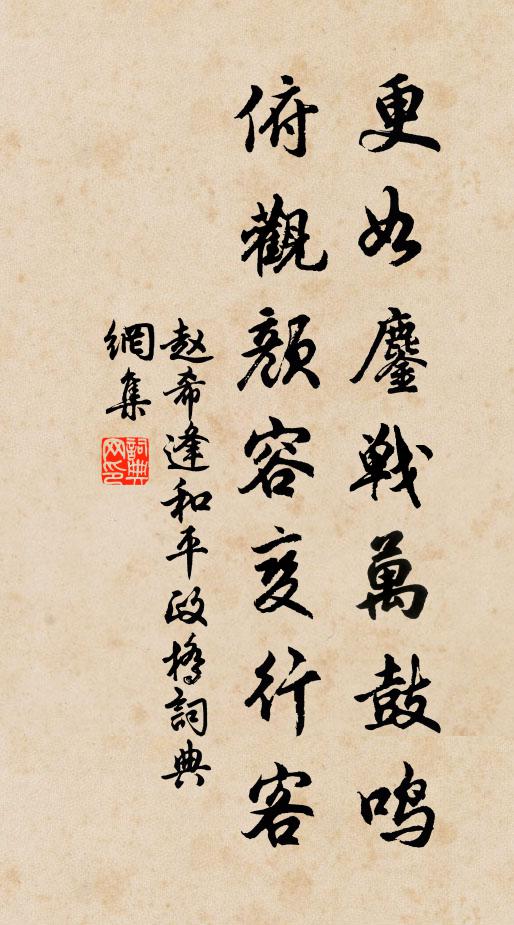 更如鏖戰萬鼓鳴
俯觀顏容变行客
赵希逢和平政橋詞典
網集
詞典網印